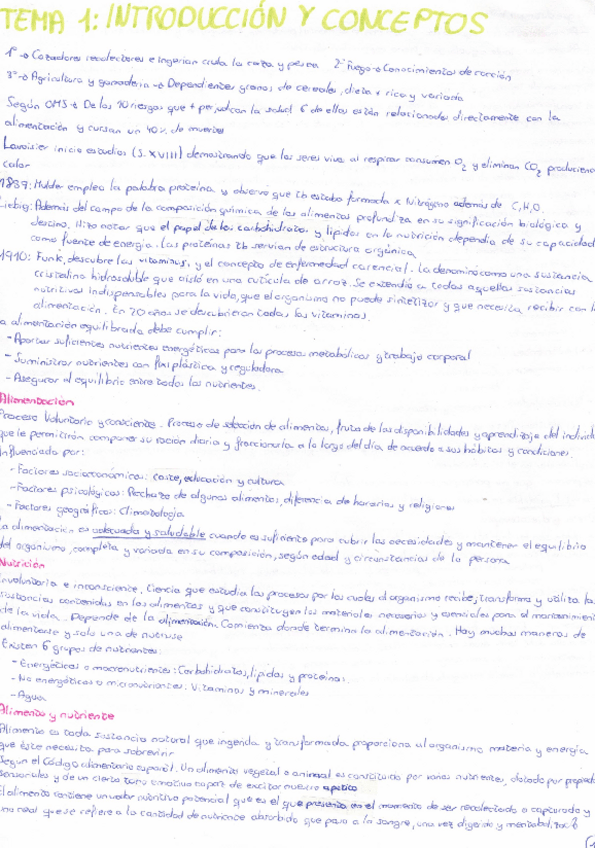 TEMA 1: INTRODUCCIÓN Y CONCEPTOS
1º → Cazadores recolectores e ingerían cruda la caza y pesca 2º Fuego → Conocimientos de cocción
3º → Agricultura y ganadería → Dependientes granos de cereales, dieta + rica y variada
Según OMS → De los 10 riesgos que + perjudican la salud 6 de ellos están relacionados directamente con la
alimentación y cursan un 40% de muertes
Lavoisier inicia estudios (S. XVIII) demostrando que los seres vivos al respirar consumen O2 y eliminan CO2 produciendo
calor
1839: Mulder emplea la palabra proteína y observó que tb estaba formada x Nitrógeno además de C, H, O.
Liebig: Además del campo de la composición química de los alimentos profundiza en su significación biológica y
destino. Hizo notar que el papel de los carbohidratos y lípidos en la nutrición dependía de su capacidad
como fuente de energía. Las proteínas tb servían de estructura orgánica
1910: Funk, descubre las vitaminas, y el concepto de enfermedad carencial. La denominó como una sustancia
cristalina hidrosoluble que aisló en una cutícula de arroz. Se extendió a todas aquellas sustancias
nutritivas indispensables para la vida, que el organismo no puede sintetizar y que necesita recibir con la
alimentación. En 20 años se descubrieron todas las vitaminas.
a alimentación equilibrada debe cumplir:
- Aportar suficientes nutrientes energéticos para los procesos metabólicos y trabajo corporal
- Suministrar nutrientes con fin plástica y reguladora
- Asegurar el equilibrio entre todos los nutrientes.
Alimentación
Proceso Voluntario y consciente. Proceso de selección de alimentos, fruto de las disponibilidades y aprendizaje del individ
que le permitirán componer su ración diaria y fraccionarla a lo largo del día de acuerdo a sus hábitos y condiciones.
Influenciada por:
- Factores socioeconómicos: coste, educación y cultura
- Factores psicológicos: Rechazo de algunos alimentos, diferencia de horarios y religiones
- Factores geográficos: Climatología
la alimentación es adecuada y saludable cuando es suficiente para cubrir las necesidades y mantener el equilibrio
del organismo, completa y variada en su composición, según edad y circunstancias de la persona
Nutrición
Involuntaria e inconsciente. Ciencia que estudia los procesos por los cuales el organismo recibe, transforma y utiliza las
sustancias contenidas en los alimentos y que constituyen los materiales necesarios y esenciales para el mantenimiento
de la vida. Depende de la alimentación. Comienza donde termina la alimentación. Hay muchas maneras de
alimentarse y solo una de nutrirse
Existen 6 grupos de nutrientes:
- Energéticos o macronutrientes: Carbohidratos, lípidos y proteínas.
- No energéticos o micronutrientes: Vitaminas y minerales
- Agua
Alimento y nutriente
Alimento es toda sustancia natural que ingerida y transformada proporciona al organismo materia y energía
que éste necesita para sobrevivir
Según el Código alimentario español: Un alimento vegetal o animal es constituido por varios nutrientes, dotado por propiedades
sensoriales y de un cierto tono emotivo capaz de excitar nuestro apetito
El alimento contiene un valor nutritivo potencial que es el que presenta en el momento de ser recolectado o capturado y
uno real que se refiere a la cantidad de nutrientes absorbido que pasa a la sangre, una vez digerido y